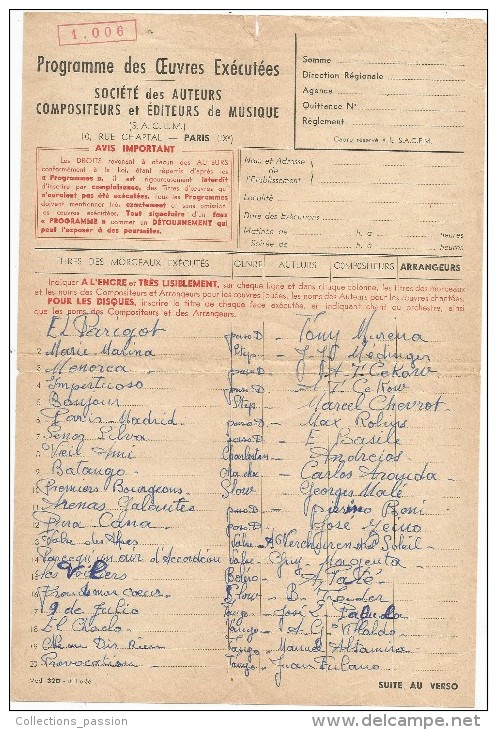 1.006
Programme des Œuvres Exécutées
SOCIÉTÉ des AUTEURS
COMPOSITEURS et ÉDITEURS de MUSIQUE
(S.A.C.E.M.)
10, RUE CHAPTAL — PARIS (IXe)
Somme
Direction Régionale
Agence
Quittance N°
Règlement
Cadre réservé à la S.A.C.E.M.
AVIS IMPORTANT
Les DROITS revenant à chacun des AUTEURS
conformément à la Loi, étant répartis d'après les
« Programmes », il est rigoureusement interdit
d'inscrire par complaisance, des Titres d'œuvres qui
n'auraient pas été exécutées. Tous les Programmes
doivent mentionner très exactement et sans omission
les œuvres exécutées. Tout signataire d'un faux
« PROGRAMME » commet un DÉTOURNEMENT qui
peut l'exposer à des poursuites.
Nom et Adresse
de
l'Établissement
Localité
Titre des Exécutions
Matinée de h. à heures
Soirée de h. à heures
TITRES DES MORCEAUX EXÉCUTÉS GENRE AUTEURS COMPOSITEURS ARRANGEURS
Indiquer A L'ENCRE et TRÈS LISIBLEMENT, sur chaque ligne et dans chaque colonne, les titres des morceaux
et les noms des Compositeurs et Arrangeurs pour les œuvres jouées, les noms des Auteurs pour les œuvres chantées.
POUR LES DISQUES, inscrire le titre de chaque face exécutée, en indiquant client ou orchestre, ainsi
que les noms des Compositeurs et des Arrangeurs.
El Parigot paso D - Tony Murena
2 Marie Marina Step -
3 Menorca paso D
4 Impertioso paso D
5 Bonjour Step - Marcel Chevrot
6 Paris Madrid paso D - Max
7 Senor Silva paso D - E Basile
8 Vieil Ami Charleston - Andreios
9 Batango - Carlos
10 Premiers Bourgeons Slow - Georges Malé
11 Arenas Galantes paso D
12 paso D - José
13 Valse - Soleil
14 d'Accordéon Valse - Guy Magenta
15 Boléro -
16 Slow - B.
17 9 de Julio Tango - José L. Padula
18 El Choclo Tango - A G Villoldo
19 Tango - Manuel
20 Provocation Tango - Juan Pulano
Mod. 320 -
SUITE AU VERSO
Collections_passion
delcampe.net